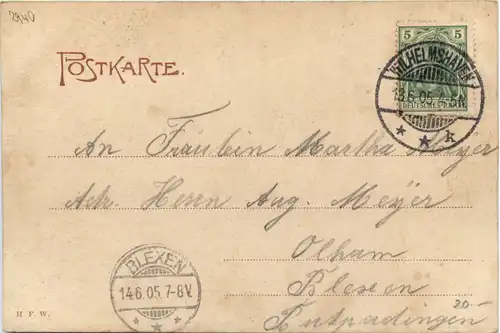 2940
POSTKARTE.
5 5
WILHELMSHAVEN
13.6.05.
DEUTSCHES REICH
* * k
An Fräulein Martha Meyer
Adr. Herrn Aug. Meyer
Olham
Blexen
Butjadingen
BLEXEN
14.6.05.7-8V.
* * *
H F W.
20.-